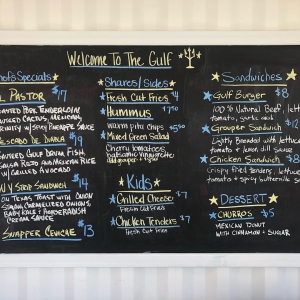 Welcome To The Gulf
Specials
Pastor
$17
Pork Tenderloin
Cactus, Mexican
Pineapple Sauce
$19
Gulf Drum Fish
Salsa Roja and Mexican Rice
Grilled Avocado
NY Strip Sandwich $14
Texas Toast with
Caramelized Onions,
Baby Kale & Horseradish
Cream Sauce
Snapper Ceviche $13
Shares/Sides
Fresh Cut Fries $4
Hummus $7.50
warm pita chips
Mixed Green Salad $5.50
Cherry tomatoes,
balsamic vinaigrette
Kids
Grilled Cheese $7
Fresh Cut Fries
Chicken Tenders $7
Fresh Cut Fries
Sandwiches
Gulf Burger $8
100% Natural Beef, lettuce
tomato, garlic aioli
Grouper Sandwich
Lightly Breaded with lettuce
tomato & lemon dill sauce
Chicken Sandwich $8
Crispy fried tenders, lettuce
tomato & spicy buttermilk
Dessert
Churros $5
Mexican Donut
with Cinnamon + Sugar